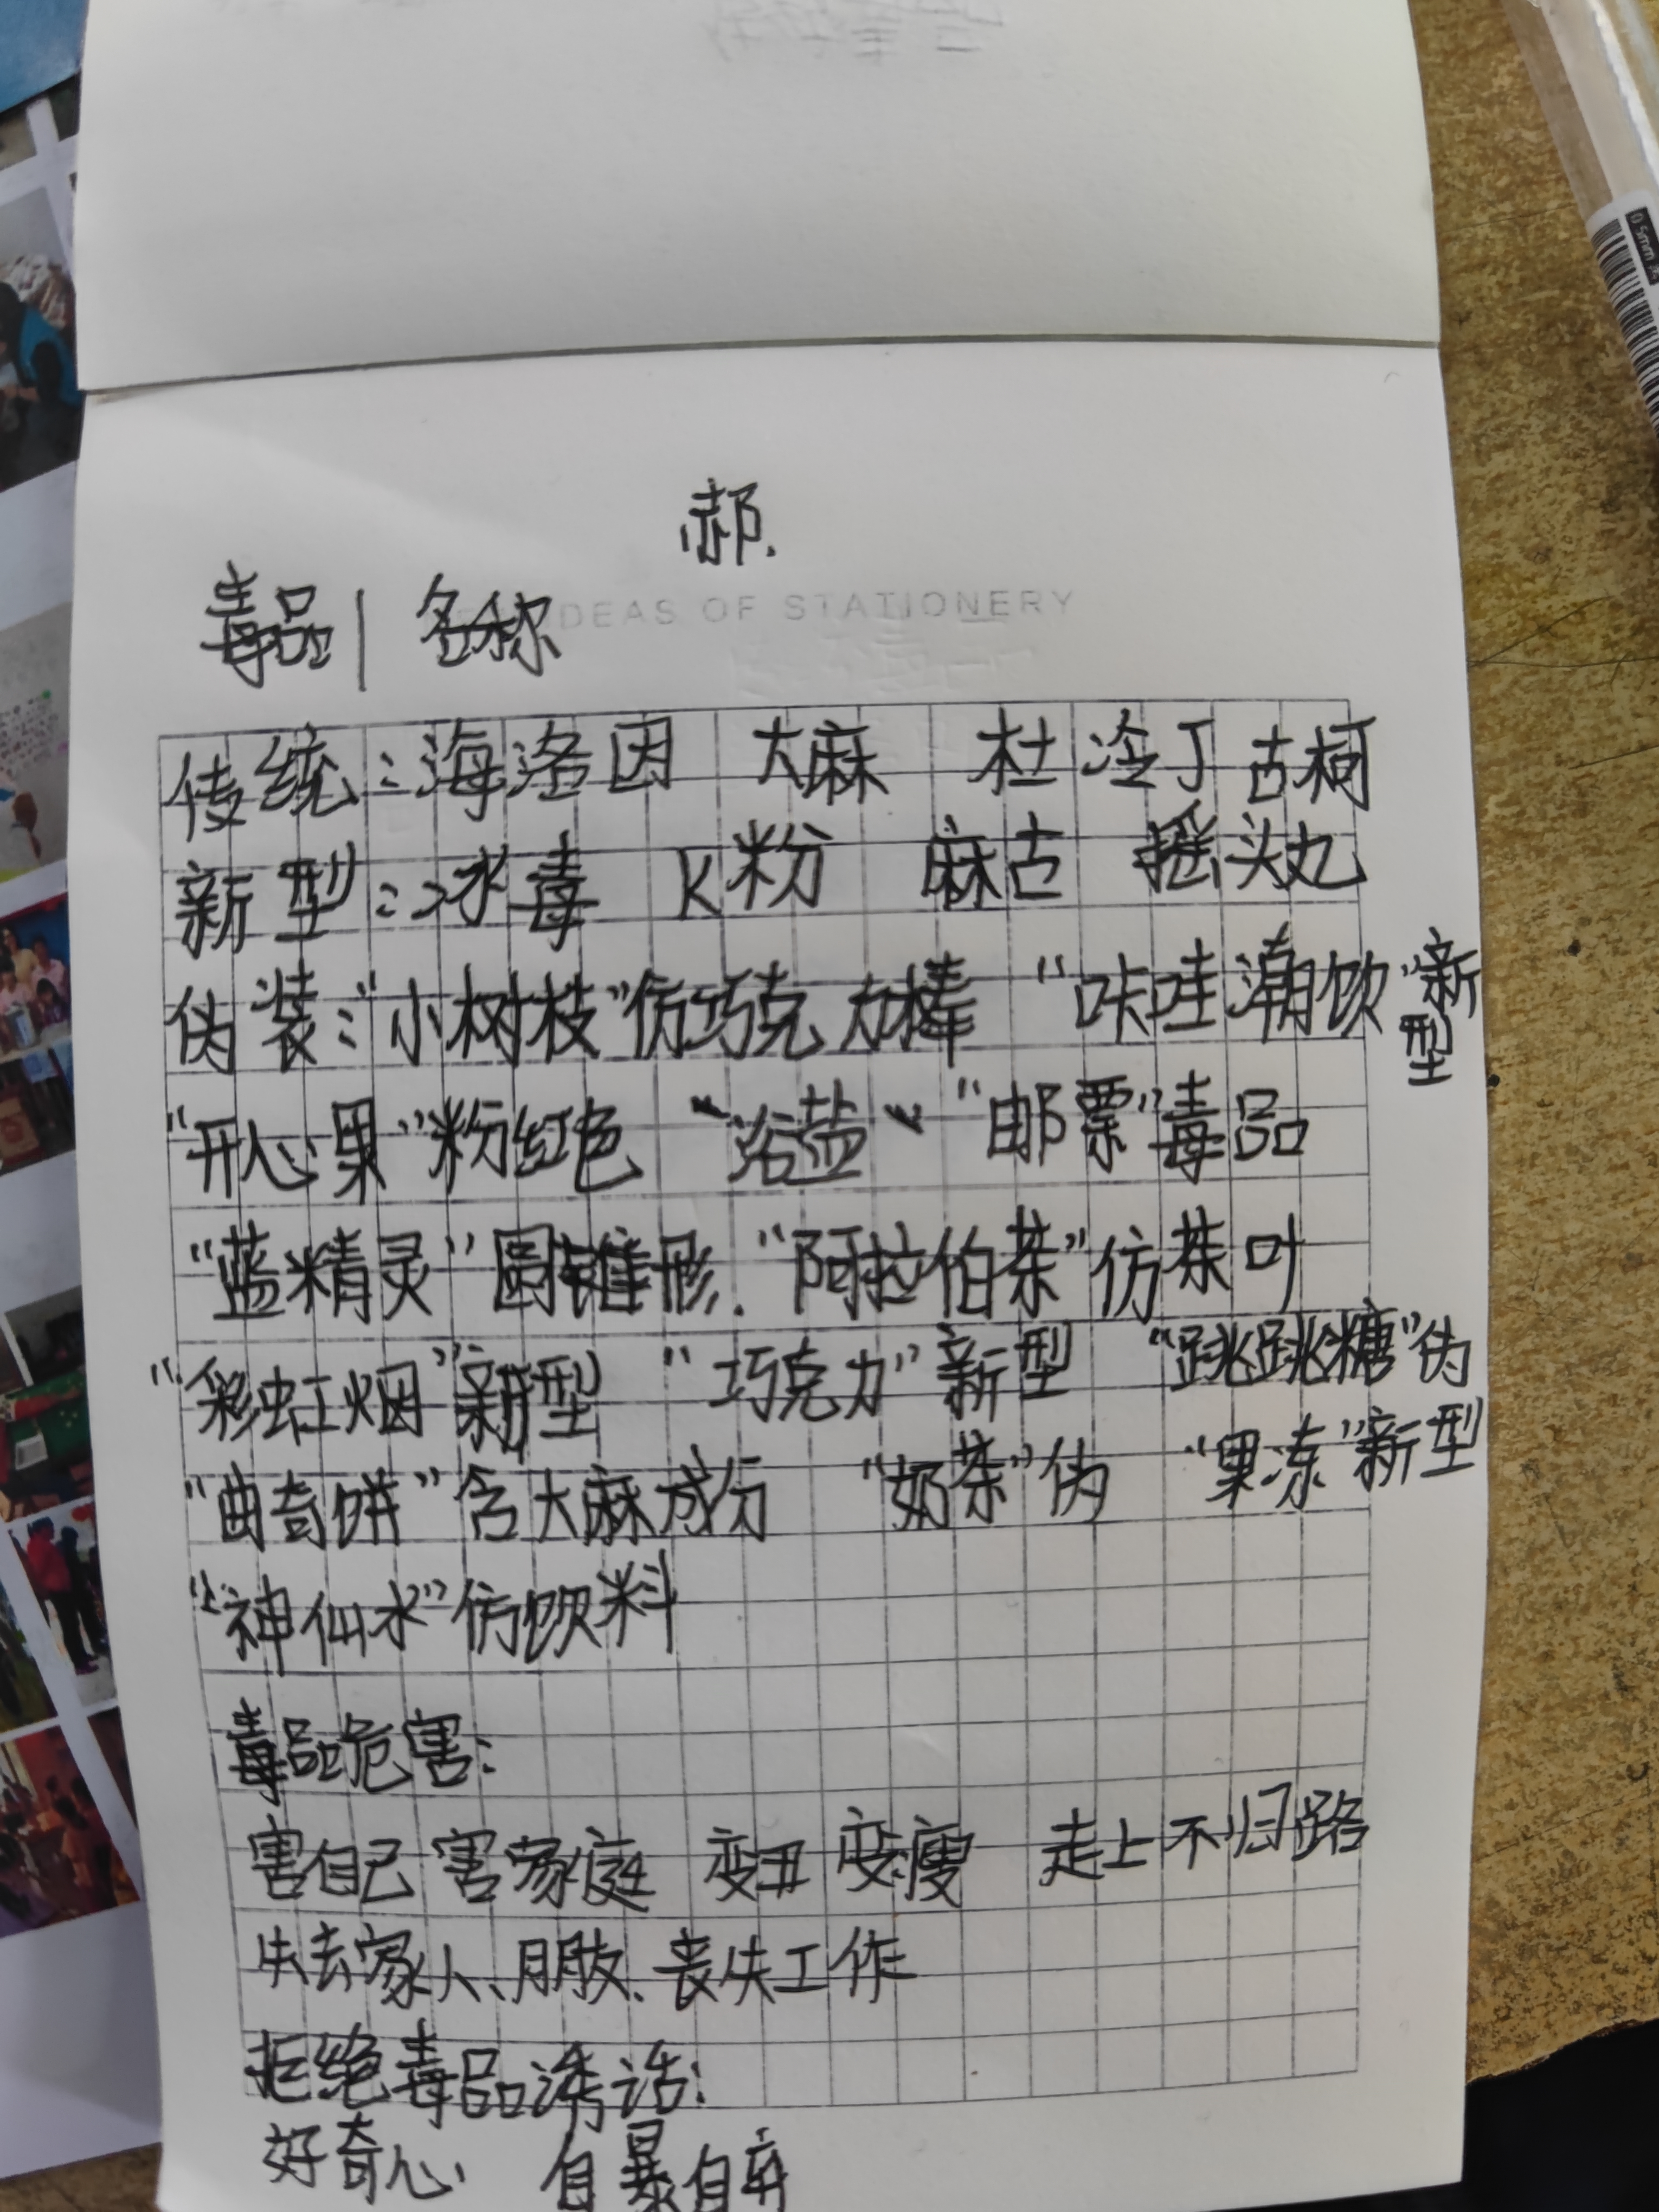 郝.
毒品| 名称
IDEAS OF STATIONERY
传统:海洛因 大麻 杜冷丁 古柯
新型:冰毒 K粉 麻古 摇头丸
伪装:"小树枝"仿巧克力棒 "咔哇潮饮"新型
"开心果"粉红色 "浴盐" "邮票"毒品
"蓝精灵"圆锥形."阿拉伯茶"仿茶叶
"彩虹烟"新型 "巧克力"新型 "跳跳糖"伪
"曲奇饼"含大麻成份 "奶茶"伪 "果冻"新型
"神仙水"仿饮料
毒品危害:
害自己 害家庭 变丑 变瘦 走上不归路
失去家人、朋友、丧失工作
拒绝毒品诱话:
好奇心、 自暴自弃
0.5mm